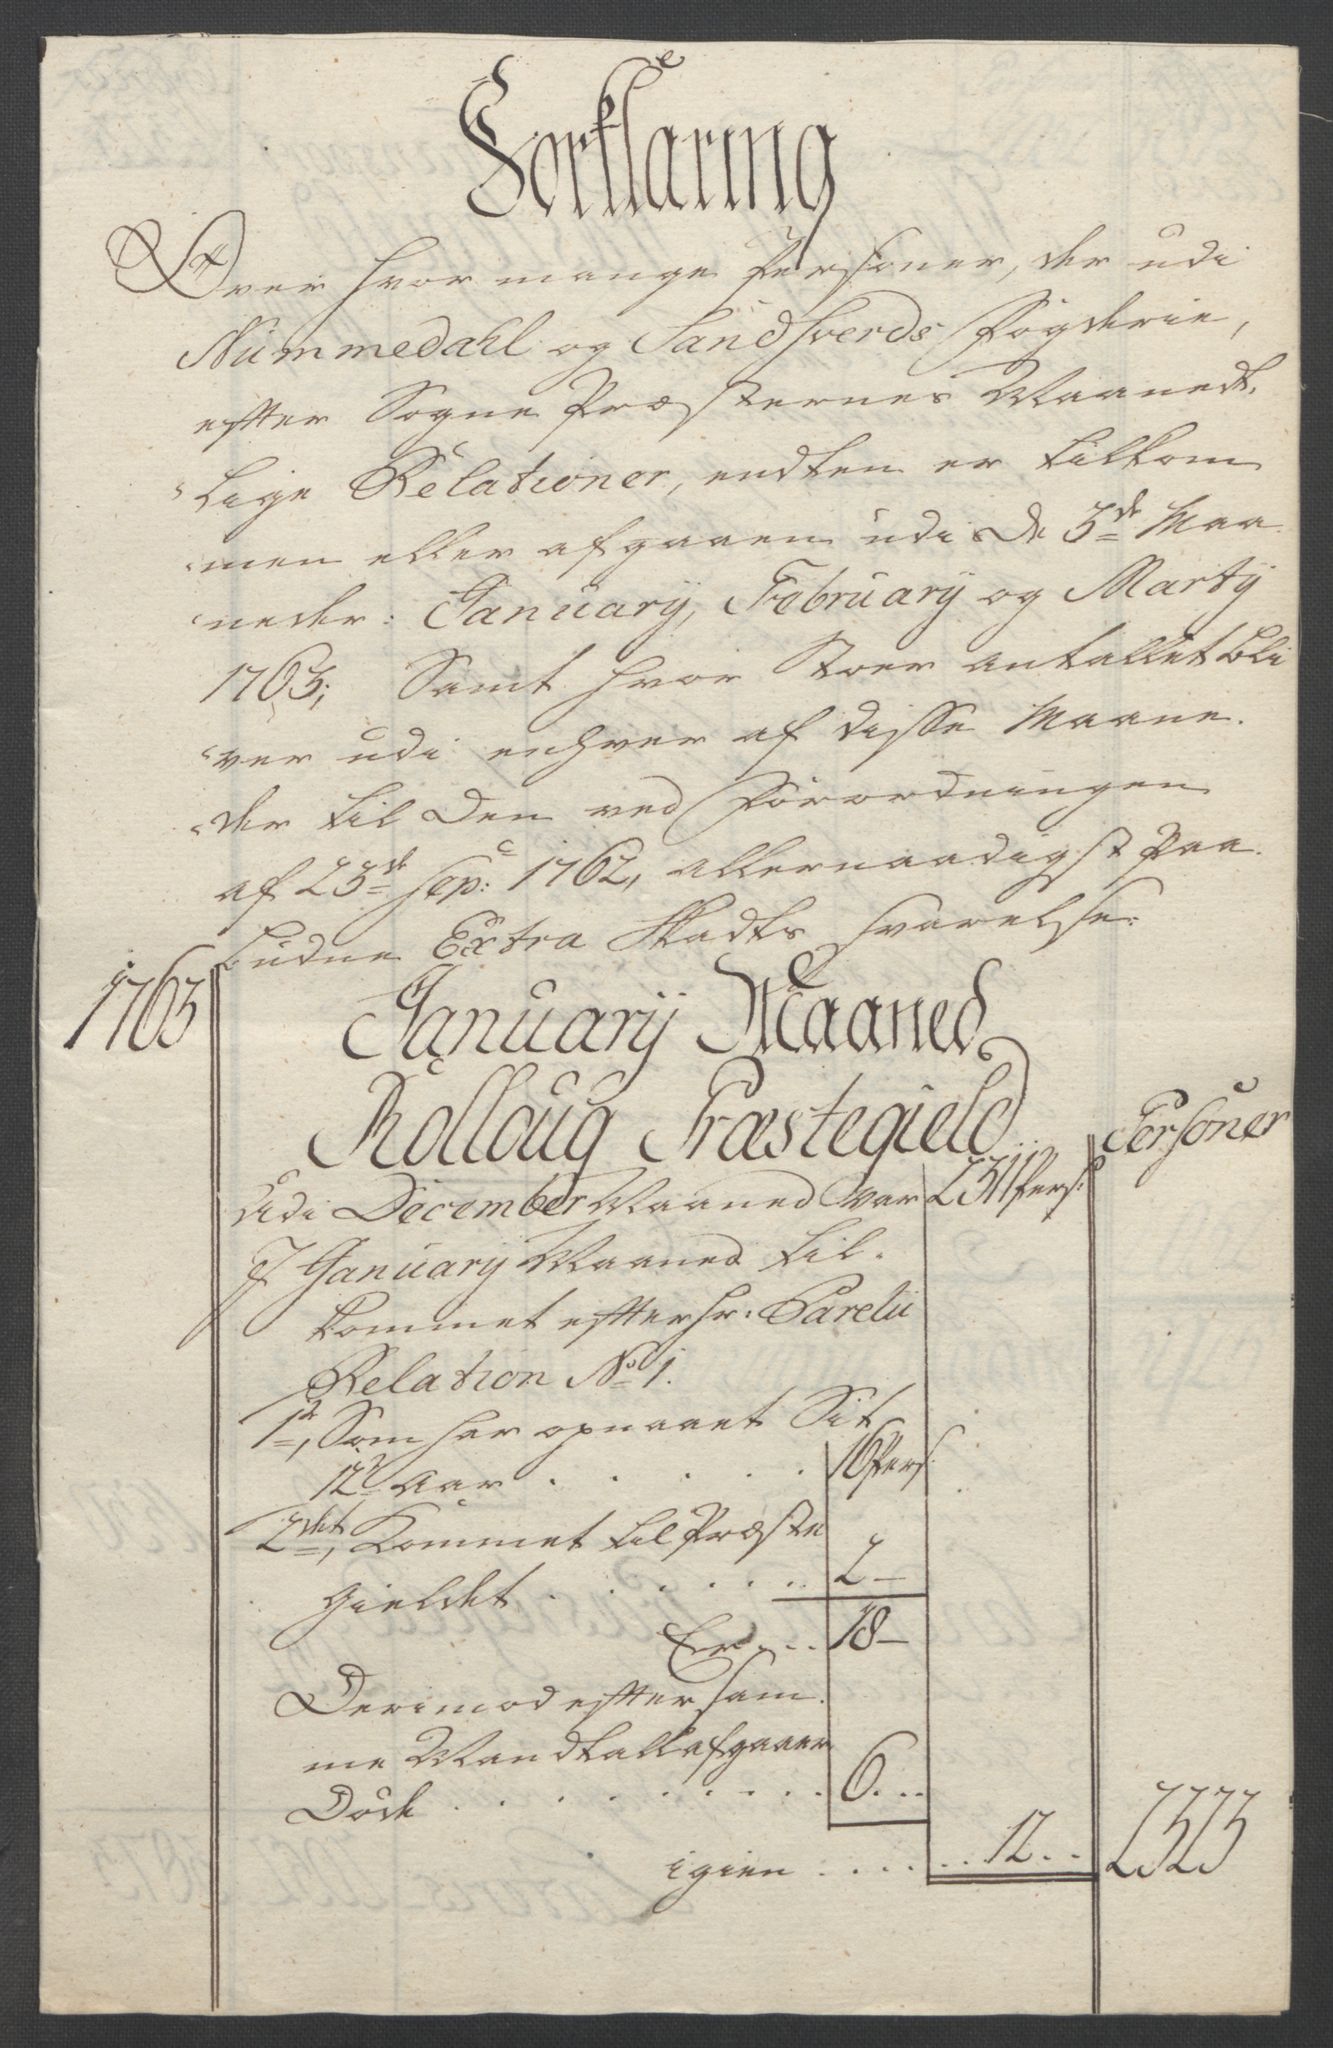 Forklaring
Over hvor mange Personer, der udi
Nummedahl og Sandsverds Fogderie,
efter Sogne Præsternes Maanedt-
lige Relationer, endten er tilkom
men eller afgaaen udi de 3de Maa
neder: Januarij, Februarij og Martij
1763; Samt hvor Stoer antallet bli
ver udi enhver af disse Maane-
der til den ved Forordningen
af 23de Sep: 1762, allernaadigst Paa-
budne Extra Skadts Svarelse:
1763
Januarij Maaned
Rolloug Præstegield
Personer
Udi December Maaned var 2311 Pers:
I Januarij Maaned til-
kommet efter Hr: Parelii
Relation No 1.
1te, Som har opnaaet Sit
12te Aar . . . . . 16 Pers:
2det, Kommet til Præste
gieldet . . . . . . 2 –
Er . . . 18 –
Derimod efter sam-
me Mandtall afgaaen
Døde . . . . . . . . . 6 . . .
igien . . . . . . . 12 . . 2323